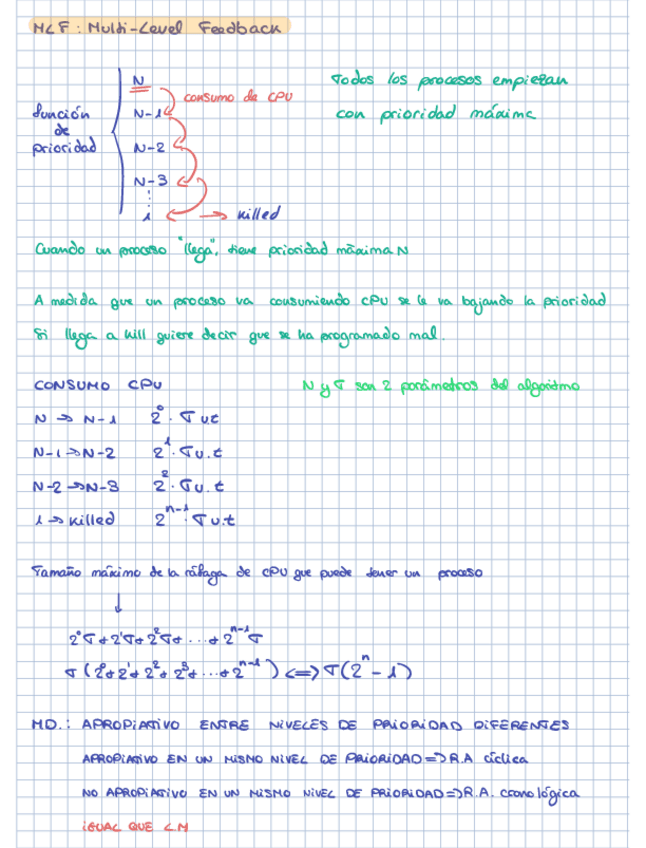 MLF: Multi-Level Feedback
función de prioridad
N
consumo de CPU
N-1
N-2
N-3
1 → killed
Todos los procesos empiezan
con prioridad máxima
Cuando un proceso "llega", tiene prioridad máxima N
A medida que un proceso va consumiendo CPU se le va bajando la prioridad
Si llega a kill quiere decir que se ha programado mal.
CONSUMO CPU
N y σ son 2 parámetros del algoritmo
N → N-1 2⁰·σ u.t
N-1 → N-2 2¹·σ u.t
N-2 → N-3 2²·σ u.t
1 → killed 2ⁿ⁻¹·σ u.t
Tamaño máximo de la ráfaga de CPU que puede tener un proceso
↓
2⁰σ+2¹σ+2²σ+...+2ⁿ⁻¹σ
σ(2⁰+2¹+2²+2³+...+2ⁿ⁻¹) <=> σ(2ⁿ-1)
MD.: APROPIATIVO ENTRE NIVELES DE PRIORIDAD DIFERENTES
APROPIATIVO EN UN MISMO NIVEL DE PRIORIDAD => R.A cíclica
NO APROPIATIVO EN UN MISMO NIVEL DE PRIORIDAD => R.A. cronológica
IGUAL QUE LM